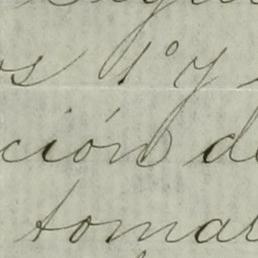 os 1º y
ción de
tomar